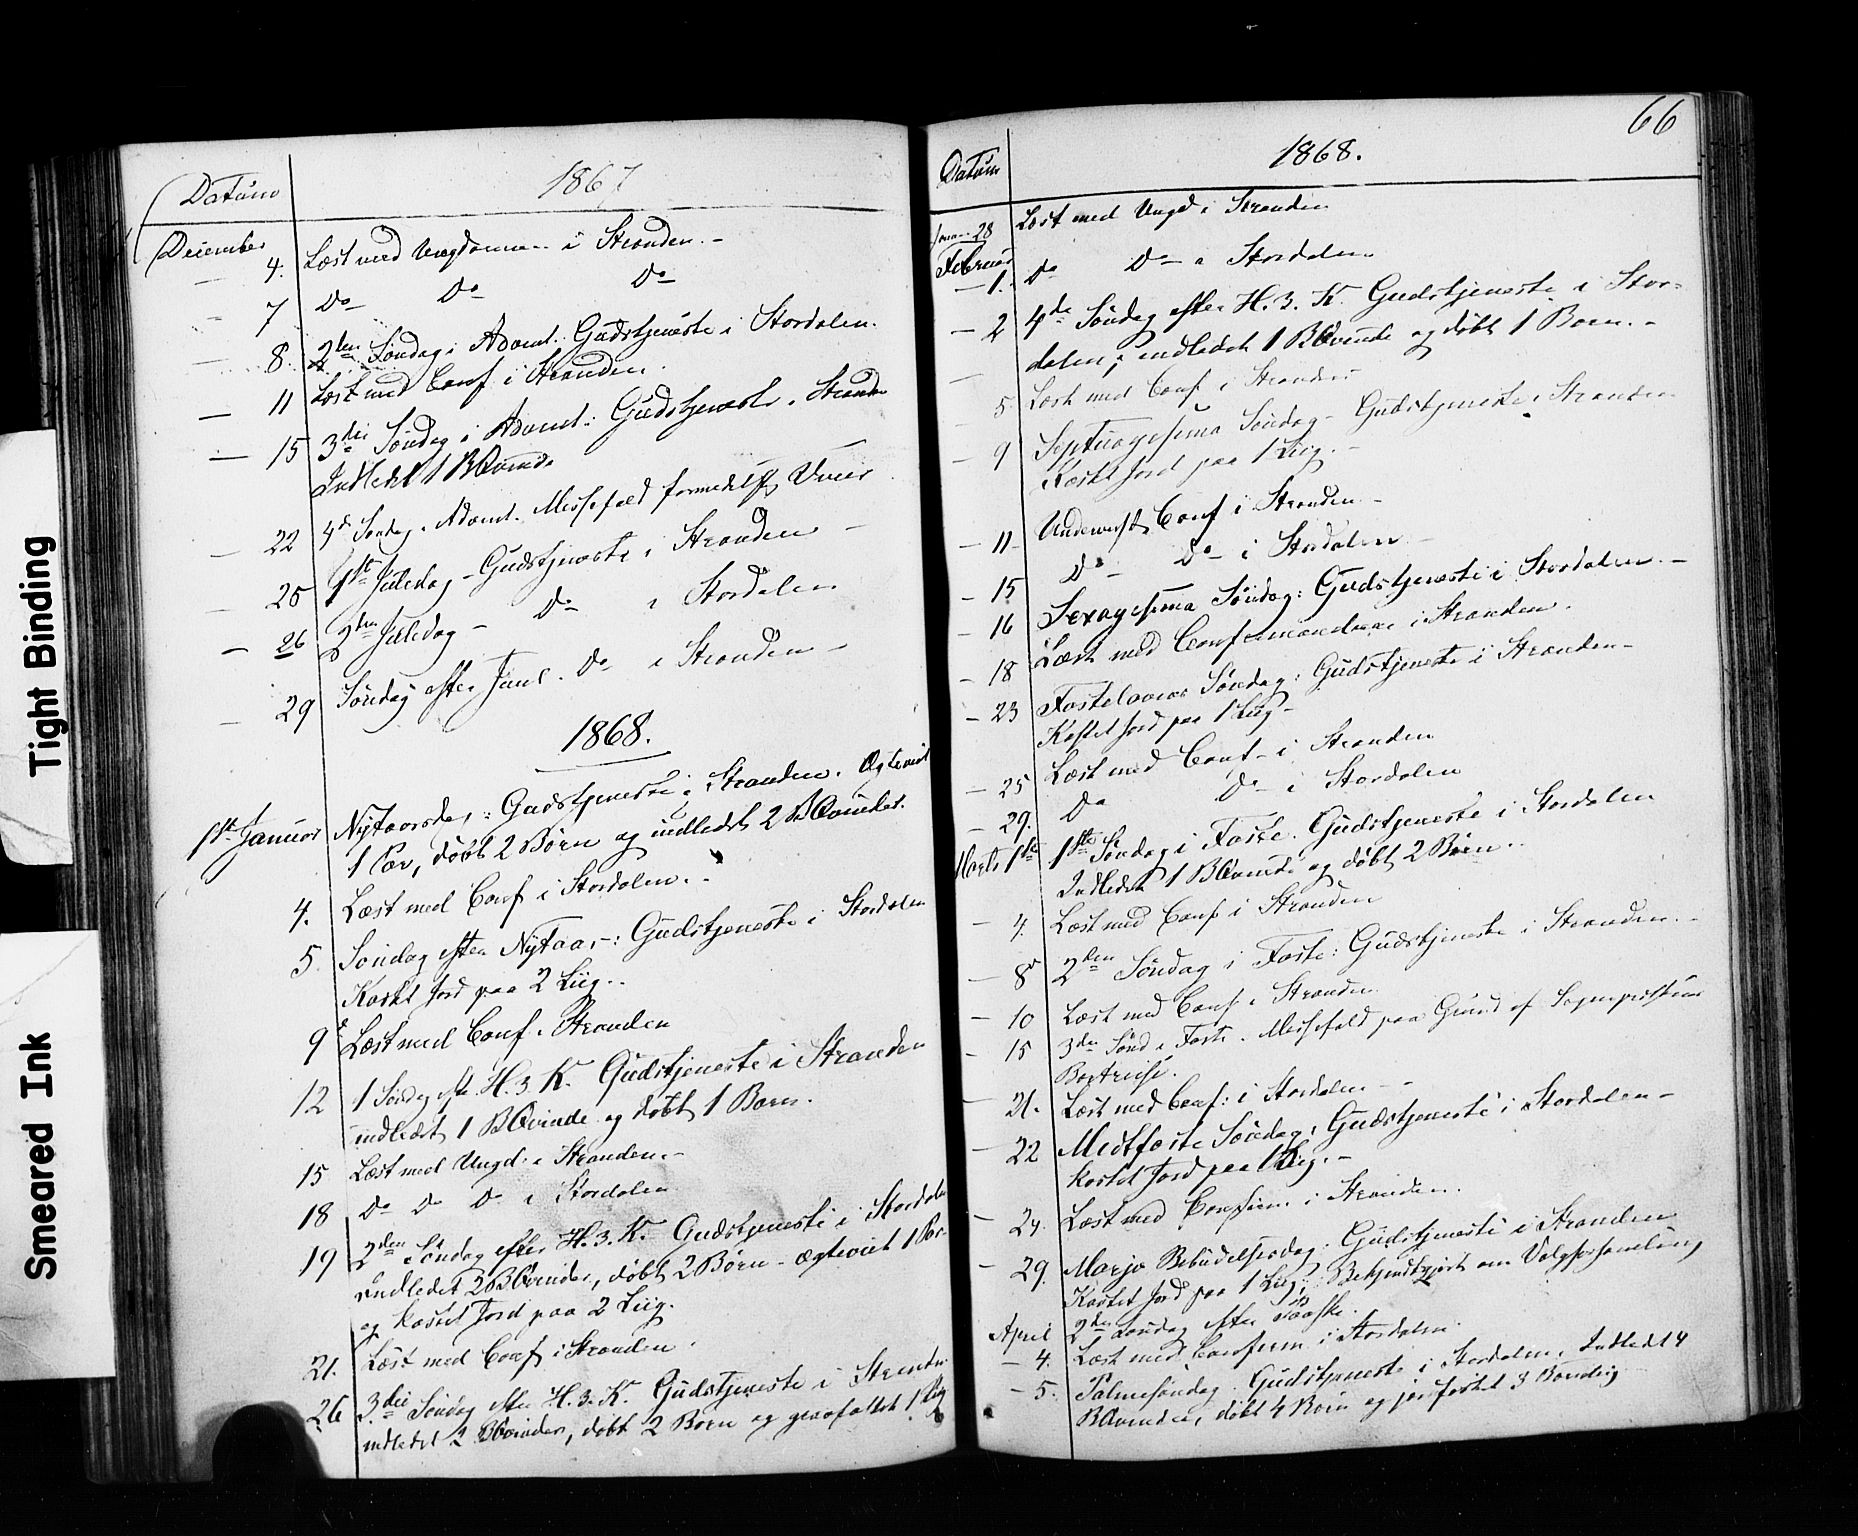 Datum 1867
December
4. Læst med Ungdommen i Stranden. -
7 Do Do Do
8. 2den Søndag i Advent. Gudstjeneste i Stordalen.
11 Læst med Conf i Stranden.
15 3die Søndag i Advent: Gudstjeneste i Stranden
Indledet 1 BQvinde
22 4de Søndag i Advent. Messefald formedelst Uveir
25 1ste Juledag - Gudstjeneste i Stranden -
26 2den Juledag - Do i Stordalen
29 Søndag efter Juul. Do i Stranden -
1868.
1ste Januar Nytaarsdag: Gudstjeneste i Stranden. Ægteviet
1 Par, døbt 2 Børn og indledet 2 BQvinder.
4. Læst med Conf i Stordalen. -
5 Søndag efter Nytaar: Gudstjeneste i Stordalen
Kastet Jord paa 2 Liig. -
9 Læst med Conf i Stranden
12 1 Søndag efter H. 3. K. Gudstjeneste i Stranden
indledet 1 BQvinde og døbt 1 Barn.
15 Læst med Ungd. i Stranden. -
18 Do Do Do i Stordalen
19 2den Søndag efter H. 3. K. Gudstjeneste i Stordalen
indledet 2 BQvinder, døbt 2 Børn - ægteviet 1 Par
og kastet Jord paa 2 Liig.
21. Læst med Conf i Stranden.
26 3die Søndag efter H. 3. K. Gudstjeneste i Stranden
indledet 2 BQvinder, døbt 2 Børn og jordfæstet 1 Liig
66
Datum 1868.
Januar 28 Læst med Ungd i Stranden
Februar
1. Do Do i Stordalen
2 4de Søndag efter H. 3. K. Gudstjeneste i Stor-
dalen; indledet 1 BQvinde og døbt 1 Barn. -
5 Læst med Conf i Stranden
9 Septuagesima Søndag - Gudstjeneste i Stranden
Kastet Jord paa 1 Liig. -
11 Underviist Conf i Stranden -
15 Do Do i Stordalen -
16 Sexagesima Søndag: Gudstjeneste i Stordalen. -
18 Læst med Confirmanderne i Stranden.
23 Fastelavns Søndag: Gudstjeneste i Stranden -
Kastet Jord paa 1 Liig -
25 Læst med Conf - i Stranden
29. Do Do i Stordalen
Marts 1ste 1ste Søndag i Faste. Gudstjeneste i Stordalen
Indledet 1 BQvinde og døbt 2 Børn. -
4. Læst med Conf i Stranden
8 2den Søndag i Faste: Gudstjeneste i Stranden. -
10 Læst med Conf i Stranden
15 3die Sønd i Faste. Messefald paa Grund af Sognepræstens
Bortreise.
21. Læst med Conf: i Stordalen -
22 Midtfaste Søndag, Gudstjeneste i Stordalen -
kastet Jord paa 1 Liig. -
24. Læst med Confirm. i Stranden.
29. Mariæ Bebudelsesdag. Gudstjeneste i Stranden
Kastet Jord paa 1 Liig; Bekjendtgjort om Valgforsamling
2den Søndag efter Paaske.
April
4. Læst med Confirm i Stordalen.
5. Palmesøndag. Gudstjeneste i Stordalen. Indledt 4
BQvinder, døbt 4 Børn og jordfæstet 3